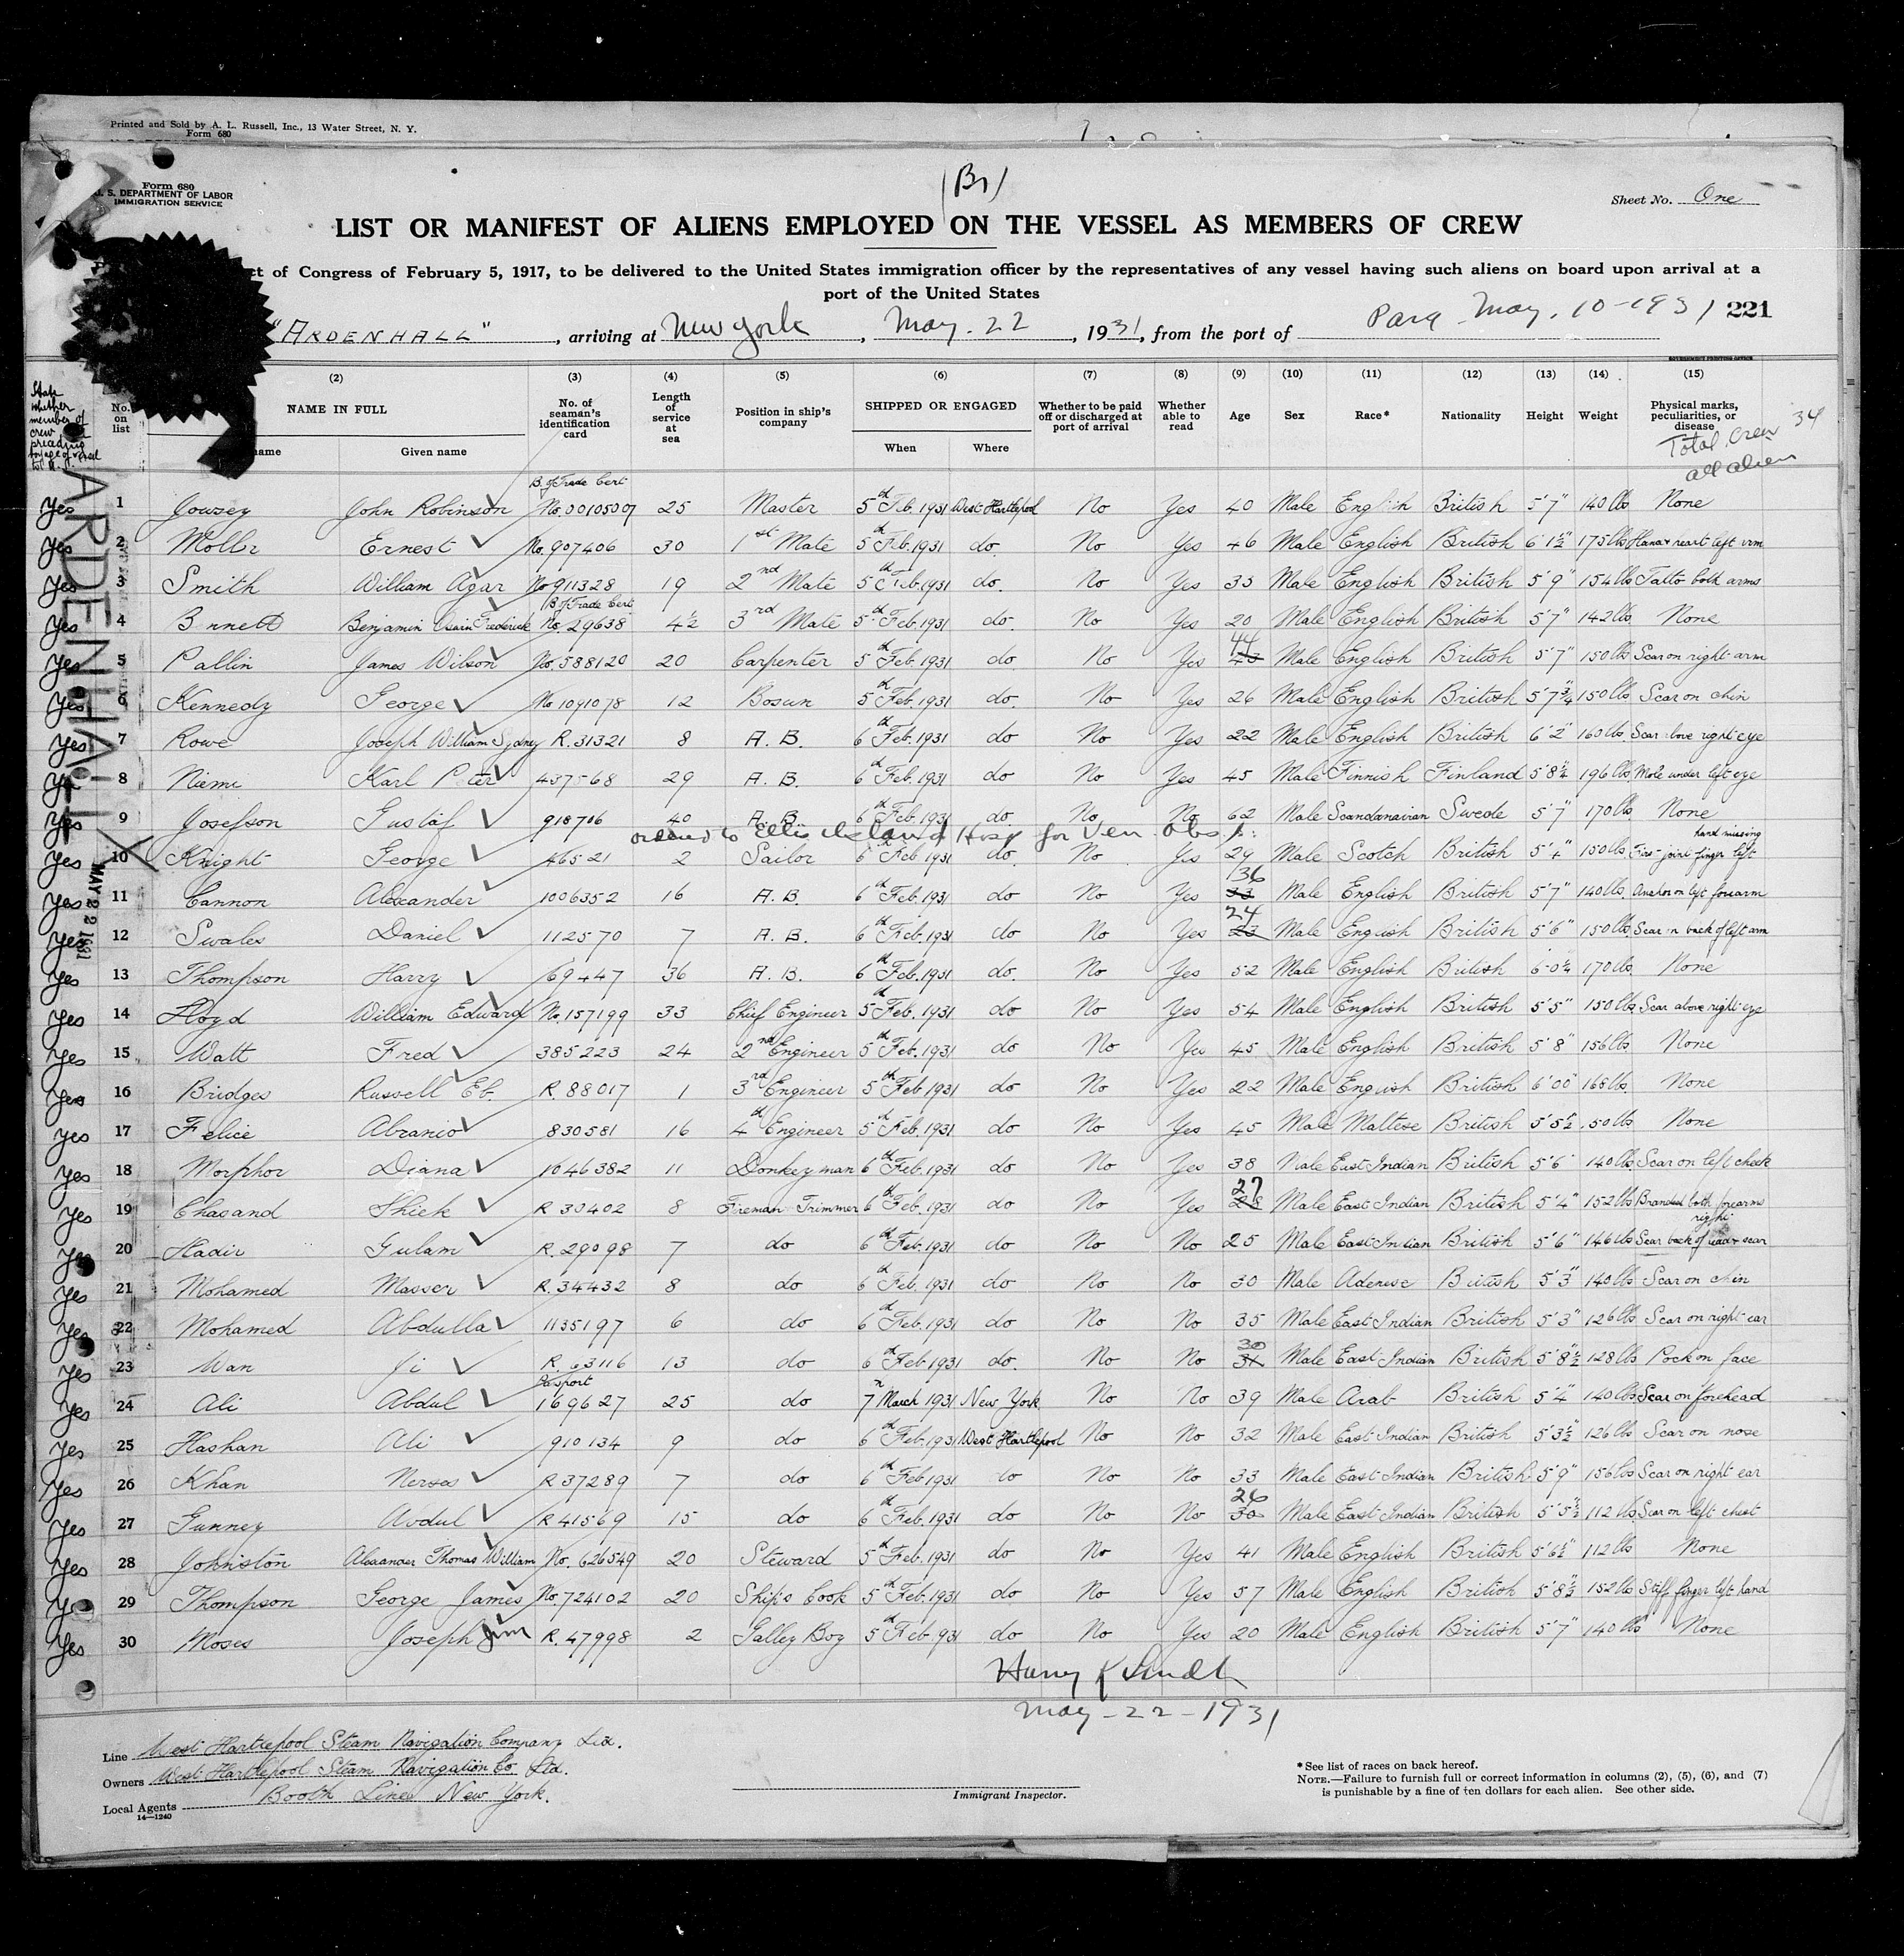 Printed and Sold by A. L. Russell, Inc., 13 Water Street, N. Y.
Form 680
Form 680
U. S. DEPARTMENT OF LABOR
IMMIGRATION SERVICE
(Br)
Sheet No. One
LIST OR MANIFEST OF ALIENS EMPLOYED ON THE VESSEL AS MEMBERS OF CREW
ct of Congress of February 5, 1917, to be delivered to the United States immigration officer by the representatives of any vessel having such aliens on board upon arrival at a
port of the United States
"ARDENHALL", arriving at New York, May. 22, 1931, from the port of Para May. 10-1931 221
State whether member of crew preceding voyage of vessel
No. on list
(2) NAME IN FULL
name Given name
(3) No. of seaman's identification card
(4) Length of service at sea
(5) Position in ship's company
(6) SHIPPED OR ENGAGED When Where
(7) Whether to be paid off or discharged at port of arrival
(8) Whether able to read
(9) Age
(10) Sex
(11) Race*
(12) Nationality
(13) Height
(14) Weight
(15) Physical marks, peculiarities, or disease
Total Crew 34
all alien
ARDENHALL
MAY 22 1931
B. of Trade Cert
Yes 1 Jowsey John Robinson No. 00105007 25 Master 5th Feb. 1931 West Hartlepool No Yes 40 Male English British 5'7" 140 lbs None
Yes 2 Ernest No. 907406 30 1st Mate 5th Feb. 1931 do. No Yes 46 Male English British 6'1½" 175 lbs left arm
Yes 3 Smith William Agar No 911328 19 2nd Mate 5th Feb. 1931 do. No Yes 33 Male English British 5'9" 154 lbs Tatto both arms
B of Trade Cert
Yes 4 Benjamin Frederick No. 29638 4½ 3rd Mate 5th Feb. 1931 do. No Yes 20 Male English British 5'7" 142 lbs. None
Yes 5 Pallin James Wilson No. 588120 20 Carpenter 5th Feb. 1931 do. No Yes 43 44 Male English British 5'7" 150 lbs Scar on right arm
Yes 6 Kennedy George No 1091078 12 Bosun 5th Feb. 1931 do. No Yes 26 Male English British 5'7¾" 150 lbs Scar on chin
Yes 7 Rowe Joseph William Sydney R. 31321 8 A. B. 6th Feb. 1931 do No Yes 22 Male English British 6'2" 160 lbs. Scar above right eye
Yes 8 Niemi Karl Peter 437568 29 A. B. 6th Feb. 1931 do No Yes 45 Male Finnish Finland 5'8½ 196 lbs Mole under left eye
Yes 9 Josefson Gustaf 918706 40 A. B. 6th Feb. 1931 do. No No 62 Male Scandanavian Swede 5'7" 170 lbs None
ordered to Ellis Island Hosp for Ven. Obs.
Yes 10 Knight George 46521 2 Sailor 6th Feb 1931 do. No Yes 29 Male Scotch British 5'4" 150 lbs First joint finger left hand missing
Yes 11 Cannon Alexander 1006352 16 A. B. 6th Feb. 1931 do No Yes 33 36 Male English British 5'7" 140 lbs. Anchor on left forearm
Yes 12 Swales Daniel 112570 7 A. B. 6th Feb. 1931 do No Yes 23 24 Male English British 5'6" 150 lbs Scar on back of left arm
Yes 13 Thompson Harry 169447 36 A. B. 6th Feb. 1931 do. No Yes 52 Male English British 6'0½ 170 lbs. None
Yes 14 Lloyd William Edward No. 157199 33 Chief Engineer 5th Feb. 1931 do No Yes 54 Male English British 5'5" 150 lbs Scar above right eye
Yes 15 Watt Fred 385223 24 2nd Engineer 5th Feb. 1931 do No Yes 45 Male English British 5'8" 156 lbs. None
Yes 16 Bridges Russell Eb. R. 88017 1 3rd Engineer 5th Feb 1931 do No Yes 22 Male English British 6'00" 168 lbs. None
Yes 17 Felice Abranio 830581 16 4th Engineer 5th Feb. 1931 do No Yes 45 Male Maltese British 5'5½ 150 lbs None
Yes 18 Morphor Diana 1046382 11 Donkeyman 6th Feb. 1931 do No Yes 38 Male East Indian British 5'6" 140 lbs Scar on left cheek
Yes 19 Chasand Shiek R 30402 8 Fireman Trimmer 6th Feb. 1931 do No Yes 28 27 Male East Indian British 5'4" 152 lbs Branded both forearms
Yes 20 Hadir Gulam R. 29098 7 do 6th Feb. 1931 do No No 25 Male East Indian British 5'6" 146 lbs Scar back of right
Yes 21 Mohamed Masser R. 34432 8 do 6th Feb. 1931 do No No 30 Male Adenese British 5'3" 140 lbs Scar on chin
Yes 22 Mohamed Abdulla 1135197 6 do 6th Feb. 1931 do No No 35 Male East Indian British 5'3" 126 lbs Scar on right ear
Yes 23 Wan Ji R. 63116 13 do 6th Feb 1931 do. No No 31 30 Male East Indian British 5'8½" 128 lbs Pock on face
Passport
Yes 24 Ali Abdul 169627 25 do 7th March 1931 New York No No 39 Male Arab British 5'4" 140 lbs Scar on forehead
Yes 25 Hashan Ali 910134 9 do 6th Feb. 1931 West Hartlepool No No 32 Male East Indian British 5'3½" 126 lbs Scar on nose
Yes 26 Khan Nersos R 37289 7 do 6th Feb 1931 do No No 33 Male East Indian British 5'9" 156 lbs Scar on right ear
Yes 27 Gunney Abdul R 41569 15 do 6th Feb. 1931 do No No 30 26 Male East Indian British 5'5½" 112 lbs Scar on left chest
Yes 28 Johnston Alexander Thomas William No. 626549 20 Steward 5th Feb. 1931 do No Yes 41 Male English British 5'6½" 112 lbs None
Yes 29 Thompson George James No. 724102 20 Ship's Cook 5th Feb. 1931 do No Yes 57 Male English British 5'8½" 152 lbs Stiff finger left hand
Yes 30 Moses Joseph Jim R. 47998 2 Galley Boy 5th Feb 1931 do No Yes 20 Male English British 5'7" 140 lbs None
Harry K
May-22-1931
Line West Hartlepool Steam Navigation Company Ltd.
Owners West Hartlepool Steam Navigation Co Ltd.
Local Agents Booth Line New York.
14—1240
Immigrant Inspector.
*See list of races on back hereof.
NOTE.—Failure to furnish full or correct information in columns (2), (5), (6), and (7)
is punishable by a fine of ten dollars for each alien. See other side.